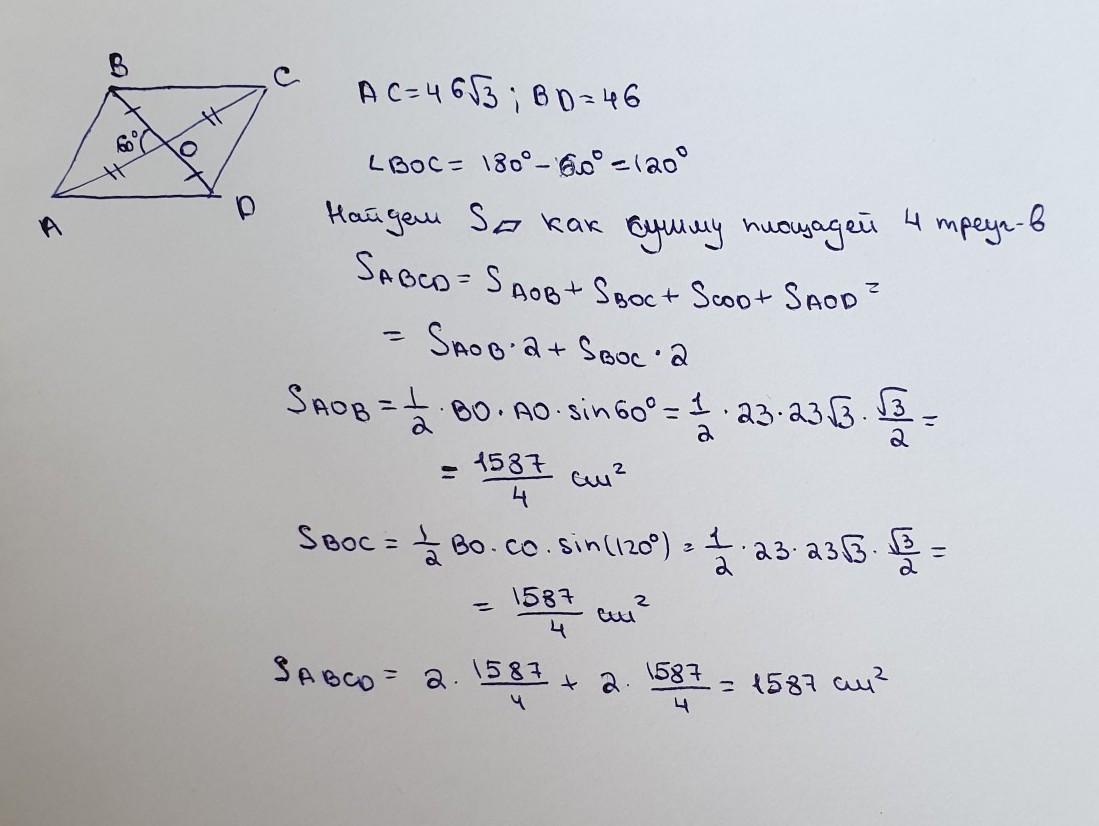 B
C
60°
O
A
D
AC=46√3 ; BD=46
∠BOC = 180° - 60° = 120°
Найдем S▱ как сумму площадей 4 треуг-в
SABCD = SAOB + SBOC + SCOD + SAOD =
= SAOB · 2 + SBOC · 2
SAOB = 1/2 · BO · AO · sin60° = 1/2 · 23 · 23√3 · √3/2 =
= 1587/4 см²
SBOC = 1/2 BO · CO · sin(120°) = 1/2 · 23 · 23√3 · √3/2 =
= 1587/4 см²
SABCD = 2 · 1587/4 + 2 · 1587/4 = 1587 см²